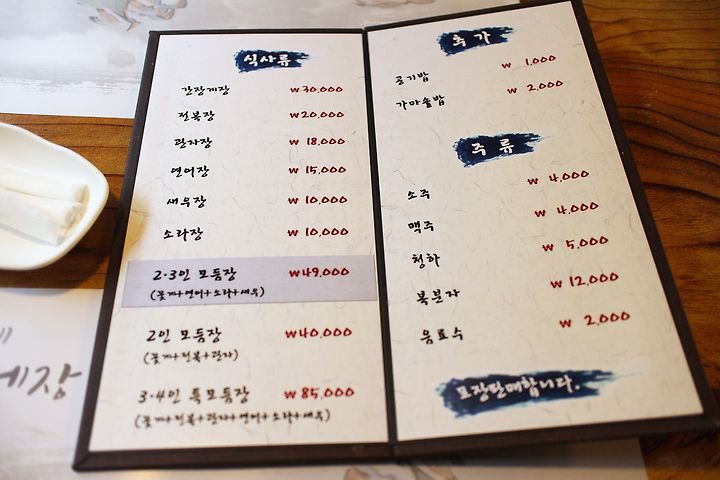 식사류
간장게장 ₩30,000
전복장 ₩20,000
관자장 ₩18,000
연어장 ₩15,000
새우장 ₩10,000
소라장 ₩10,000
2·3인 모둠장 ₩49,000
(꽃게+연어+소라+새우)
2인 모둠장 ₩40,000
(꽃게+전복+관자)
3·4인 특모둠장 ₩85,000
(꽃게+전복+관자+연어+소라+새우)
추가
공기밥 ₩1,000
가마솥밥 ₩2,000
주류
소주 ₩4,000
맥주 ₩4,000
청하 ₩5,000
복분자 ₩12,000
음료수 ₩2,000
포장판매합니다.
게장